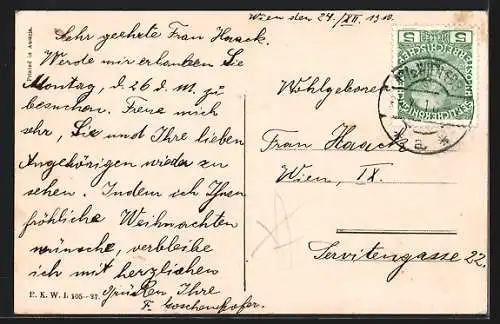 Wien den 24./XII. 1910.
Sehr geehrte Frau Haack.
Werde mir erlauben Sie
Montag, d. 26 d. M. zu
besuchen. Freue mich
sehr, Sie und Ihre lieben
Angehörigen wieder zu
sehen. Indem ich Ihnen
fröhliche Weihnachten
wünsche, verbleibe
ich mit herzlichen
Grüßen Ihre
F.
Printed in Austria.
P. K. W. I. 105—37.
Wohlgeboren
Frau Haack
Wien, IX.
Servitengasse 22.
5 5
WIEN
* a *